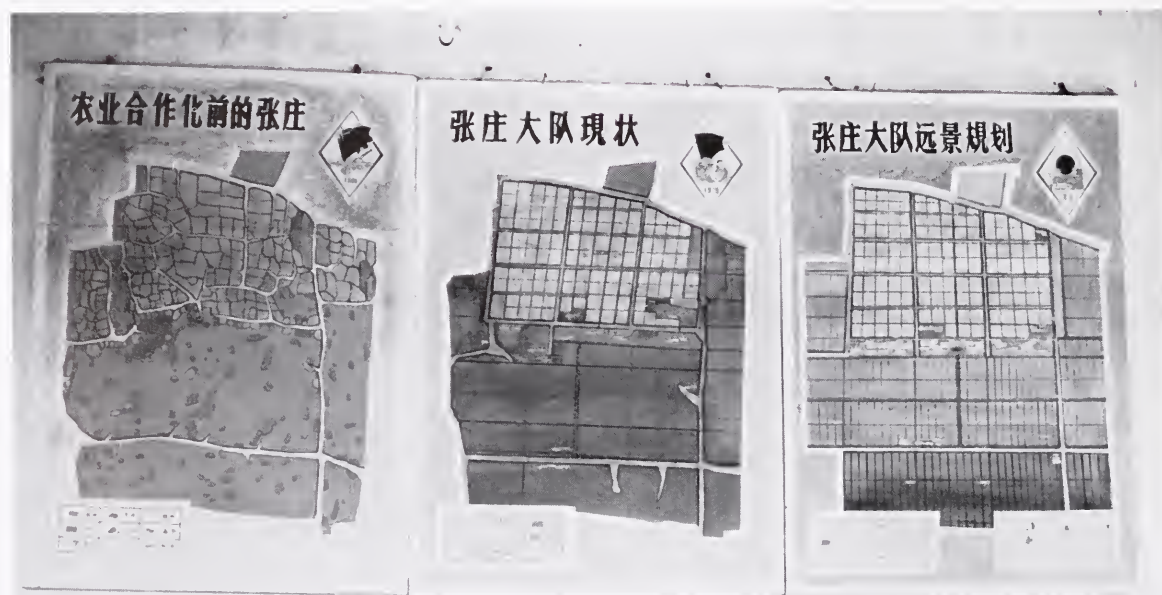 农业合作化前的张庄
张庄大队現状
张庄大队远景规划